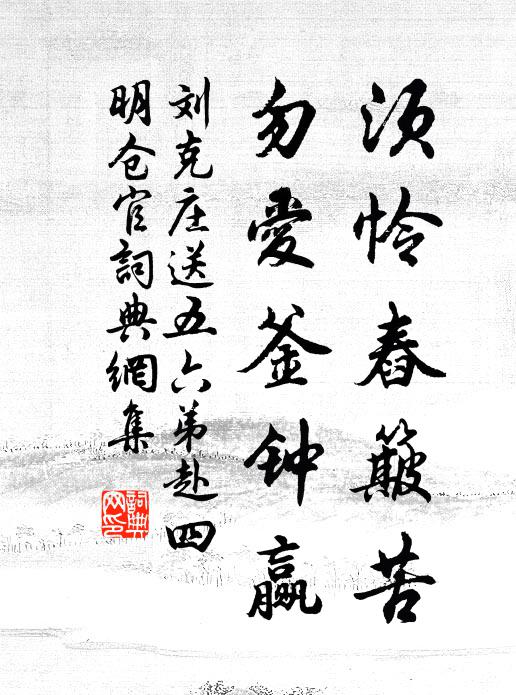 须怜舂簸苦
勿爱釜钟赢
刘克庄送五六弟赴四
明仓官詞典網集
詞典网印